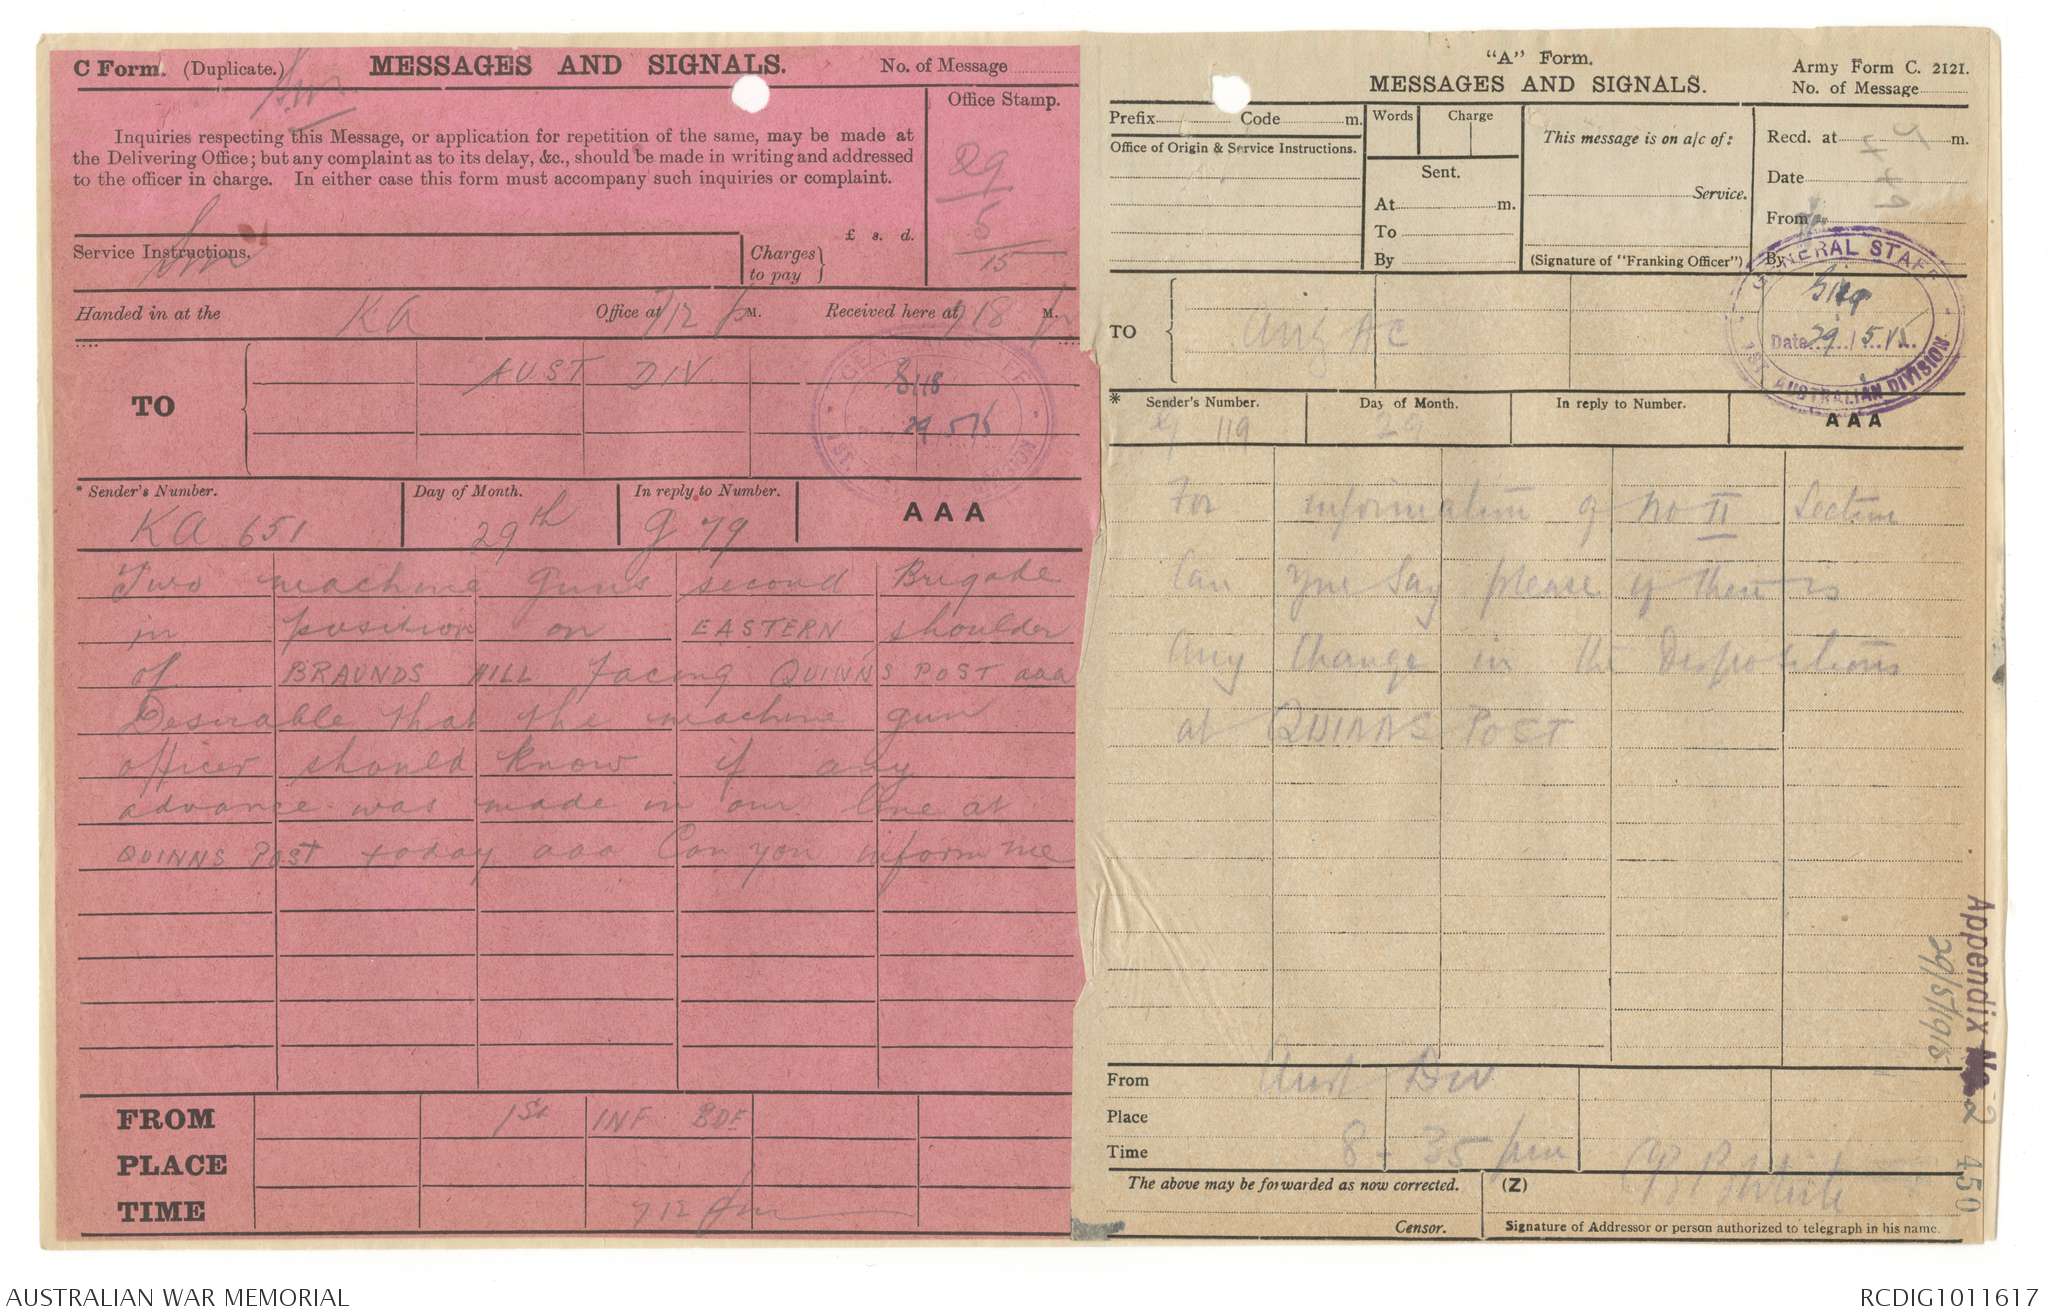 C Form. (Duplicate.) MESSAGES AND SIGNALS. No. of Message
Office Stamp.
Inquiries respecting this Message, or application for repetition of the same, may be made at
the Delivering Office; but any complaint as to its delay, &c., should be made in writing and addressed
to the officer in charge. In either case this form must accompany such inquiries or complaint.
29
5
15
£ s. d.
Service Instructions.
Charges
to pay
Handed in at the KA Office at 712 p M. Received here at 718 p M.
TO AUST DIV
G118
29 5 15
* Sender's Number. Day of Month. In reply to Number. AAA
KA 651 29th G 79
Two machine guns second Brigade
in position on EASTERN shoulder
of BRAUNDS HILL facing QUINNS POST aaa
Desirable that the machine gun
officer should know if any
advance was made in our line at
QUINNS POST today aaa Can you inform me
FROM 1st INF BDE
PLACE
TIME 712 pm
"A" Form.
MESSAGES AND SIGNALS.
Army Form C. 2121.
No. of Message
Prefix Code m.
Words Charge
This message is on a/c of:
Recd. at m.
Office of Origin & Service Instructions.
Sent.
At m.
To
By
Service.
(Signature of "Franking Officer")
Date
From
By
GENERAL STAFF
G119
Date 29/5/15
1ST AUSTRALIAN DIVISION
TO
* Sender's Number. Day of Month. In reply to Number. AAA
G 119 29
For information of No II Section
Can you say please if there is
any change in the Dispositions
at QUINNS POST
From Aust Div
Place
Time 8 - 35 pm
The above may be forwarded as now corrected. (Z)
CBB White
Censor. Signature of Addressor or person authorized to telegraph in his name.
Appendix No 2
29/5/1915
450
AUSTRALIAN WAR MEMORIAL
RCDIG1011617